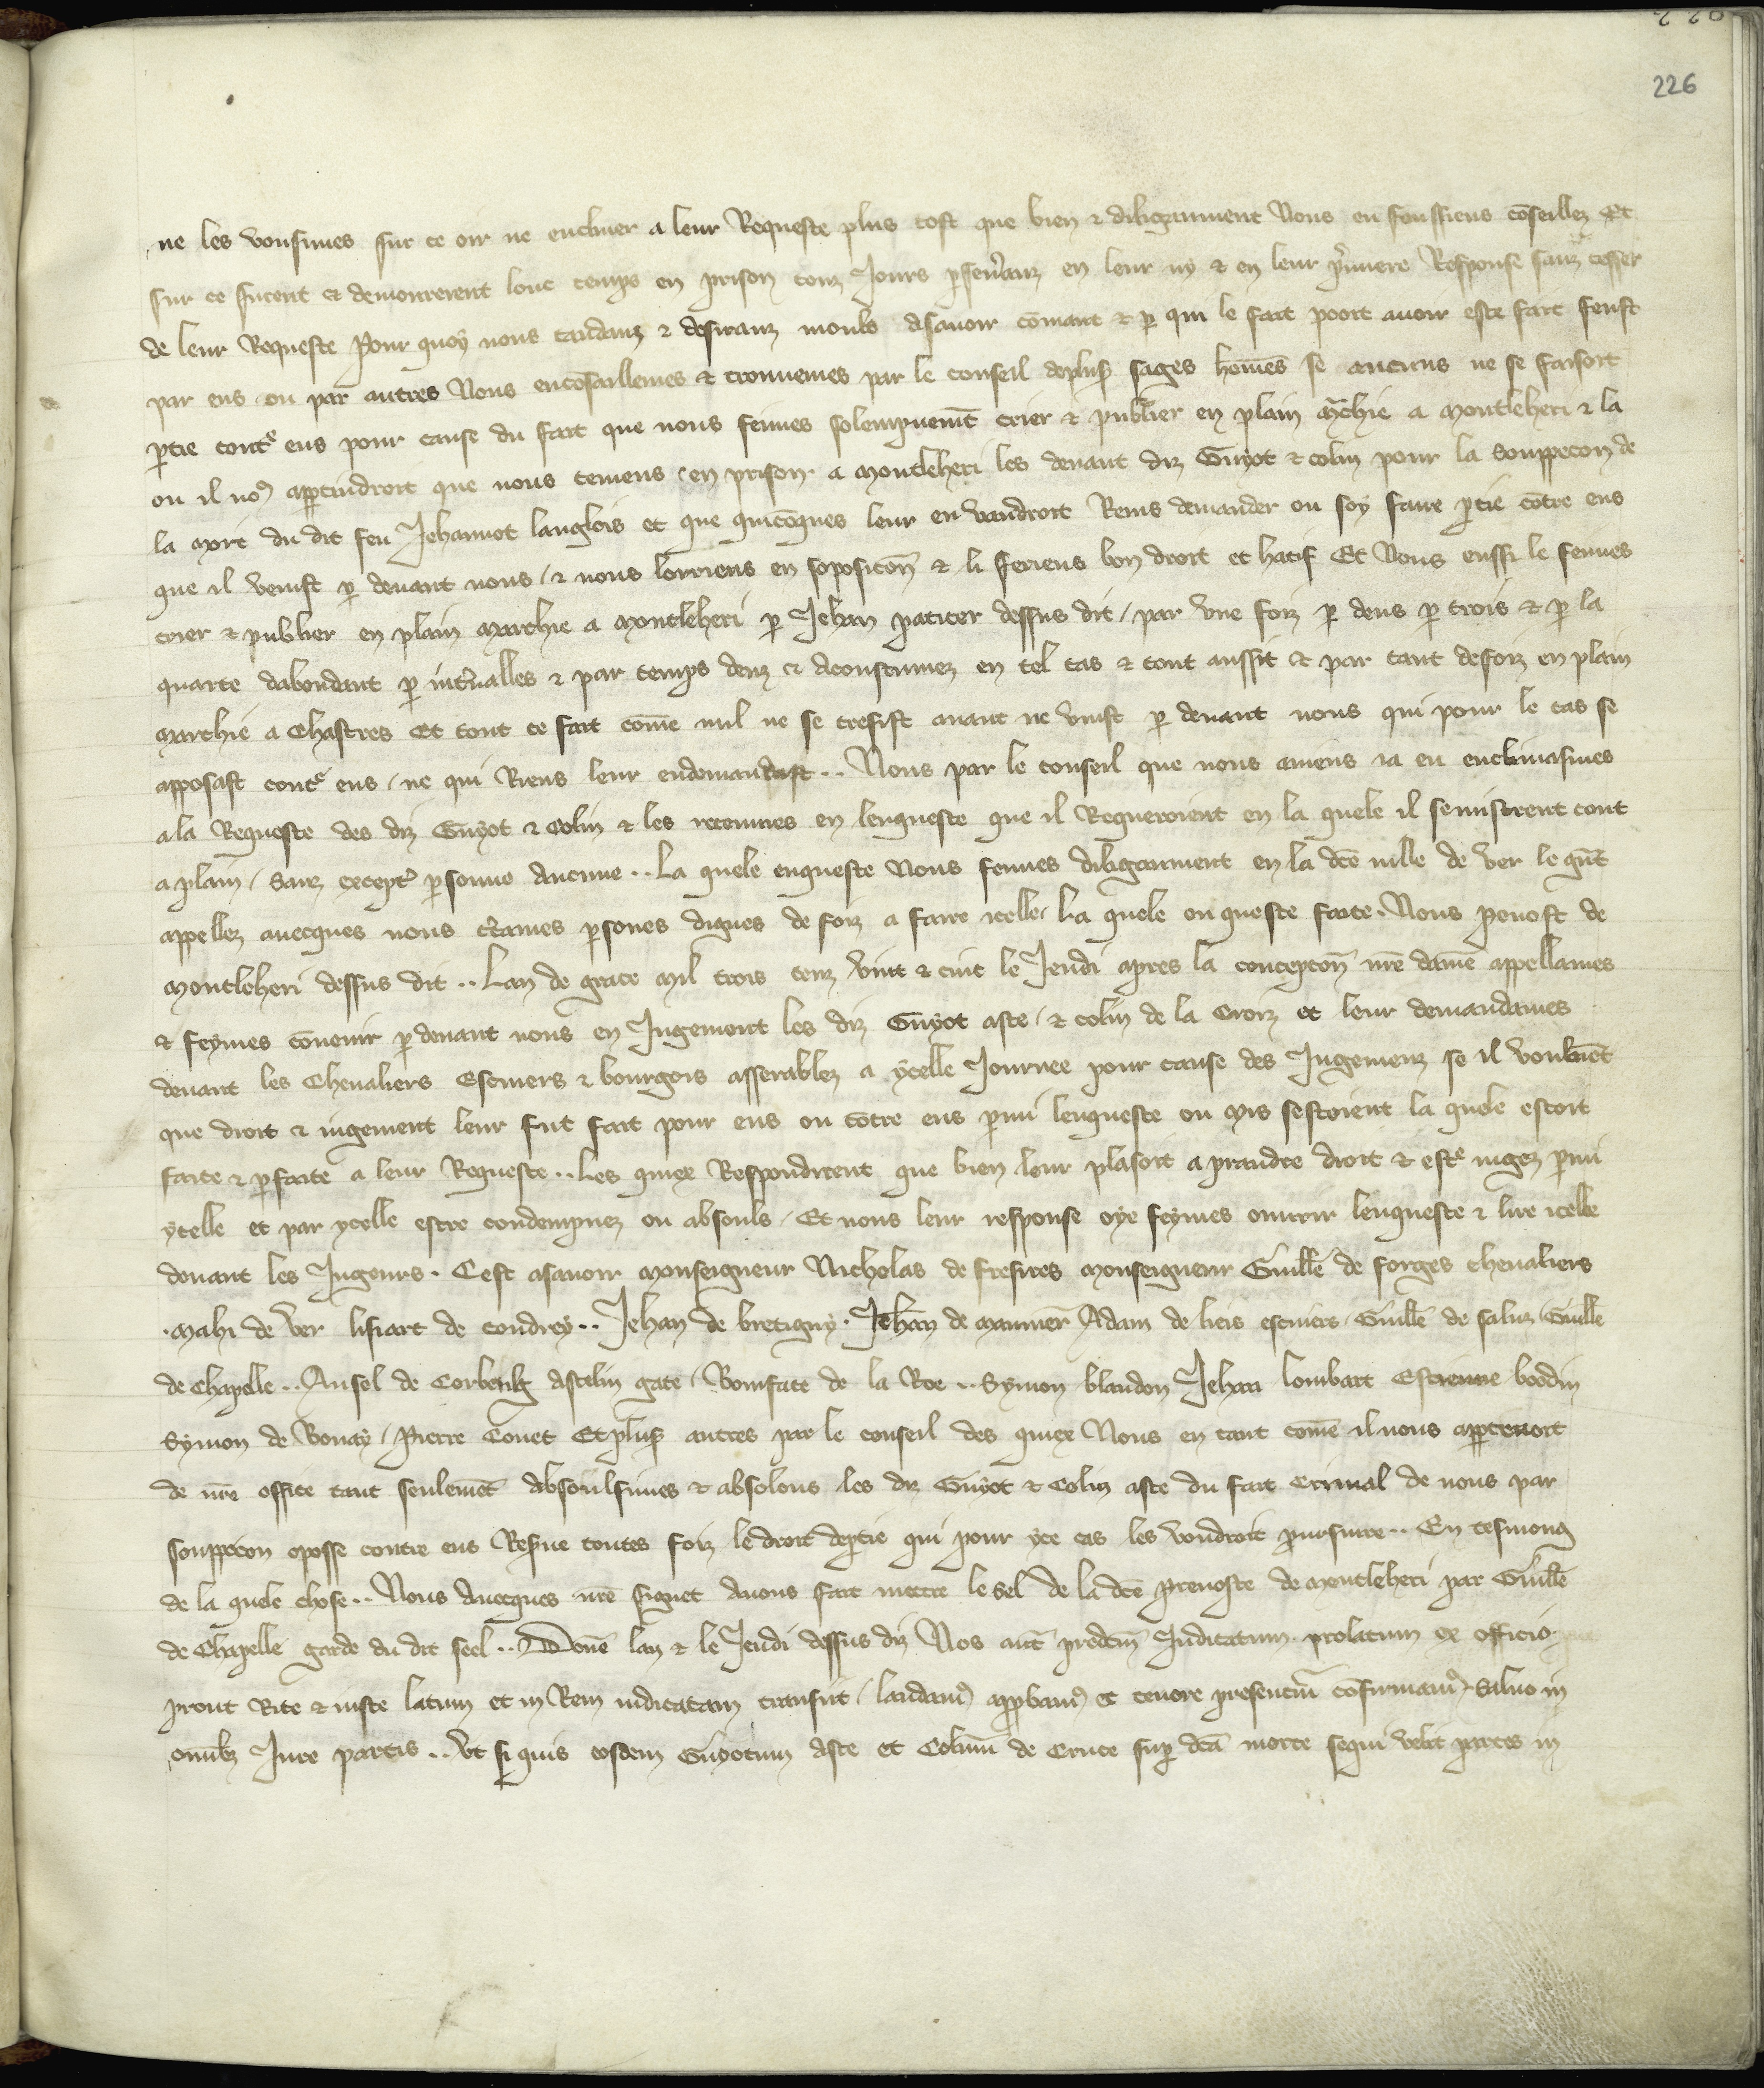 226
ne les vousimes sur ce oir ne encliner a leur Requeste plus tost que bien & diliganment Nous en feussiens cōseillez Et
sur ce furent & demourerent lonc temps en prison touz Jours p̱seṽanz en leur ny & en leur p̃miere Response sanz cesser
de leur Requeste Pour quoy nous tandanz & desiranz moult asavoir cōmant & p̱ qui le fait pooit avoir este fait feust
par eus ou par autres Nous encōsaillemes & trouvemes par le conseil deplus̉ sages hōmes se aucuns ne se faisoit
p̱tie cont̉ eus pour cause du fait que nous feimes solempnemēt crier & publier en plain m̃chie a Montleheri & la
ou il no9 app̱tindroit que nous teniens en prison a Montleheri les devant diz Guyot & colin pour la souppecon de
la mort du dit feu Jehannot langlois et que quicōques leur en vandroit Riens demander ou soy faire p̱tie cōtre eus
que il venist p̱ devant nous / & nous lorriens en soposicōn & li feriens bon droit et hatif Et Nous eussi le feimes
crier & publier en plain marchie a Montleheri p̱ Jehan paticer dessus dit / par vne foiz p̱ deus p̱ trois & p̱ la
quarte dabondant p̱ int̃valles & par temps deuz & acoustumez en tel cas & tout aussit & par tant defoiz en plain
marchie a Chastres Et tout ce fait cōme nul ne se tresist avant ne vinst p̱ devant nous qui pour le cas se
apposast cont̉ eus / ne qui Riens leur endemandast .. Nous par le conseil que nous aviens ia eu enclinasmes
ala Requeste des diz Guyot & Colin & les receumes en lenqueste que il Requeroient en la quele il semistrent tout
a plain / sanz except̉ p̱sonne aucune .. La quele enqueste Nous feimes diliganment en la dc̄e ville de ver le gñt
appellez avecques nous c̃taines p̱sones dignes de foiz a faire icelle / La quele enqueste faite. Nous Prevost de
Montleheri dessus dit .. Lan de grace mil trois cenz vint & cinc le Jeudi apres la concepcōn nr̄e dame appellames
& feymes cōvenir p̱ devant nous en Jugement les diz Guyot aste / & colin de la Croiz et leur demandames
devant les Chevaliers Escuiers & bourgois assemblez a ycelle Journee pour cause des Jugemenz se il vouloiēt
que droit & iugement leur fut fait pour eus ou cōtre eus p̱mi lenqueste ou mis sestoient la quele estoit
faite & p̱faite a leur Requeste .. Les quiex Respondirent que bien leur plasoit a prandre droit & est̉ iugez p̱mi
ycelle et par ycelle estre condempnez ou absouls / Et nous leur response oye feymes ouvrir lenqueste & lire icelle
devant les Jugeurs . Cest asavoir monseigneur Nicholas de fresnes monseigneur Guill̄e de forges chevaliers
. Mahi de ver lisiart de coudrey .. Jehan de bretigny . Jehan de mannier Adam de liers escuiers / Guill̄e de saluz / Guill̄e
de Chapelle .. Ansel de Corbeulg Ascelin gate / Boniface de la Roe .. Symon blandon Jehan lombart Estienne boodin
Symon de Bonay / Pierre Covet Et plus̉ autres par le conseil des quiex Nous en tant cōme il nous app̱tenoit
de nr̄e office tant seulemēt absoulsimes & absolons les diz Guyot & Colin aste du fait Criminal de nous par
souppecon oposse contre eus Res̃ve toutes foiz le droit dep̱tie qui pour yce cas les voudroit pursuire .. En tesmong
de la quele chose .. Nous avecques nr̄e signet avons fait mettre le seel de la dc̄e prevoste de montleheri par Guill̄e
de Chapelle garde du dit seel .. Donē lan & le Jeudi dessus diz Nos aut̄ predcm̄ Judicatum prolatum ex officio
prout Rite & iuste latum et in Rem iudicatam transiit / laudam9 app̱bam9 et tenore presentiū cōfirmam9 . Salvo in
om̄ibz Jure partis .. Vt si quis eosdem Guyotum Aste et Colinū de Cruce sup̱ dc̄a morte sequi velit partes in